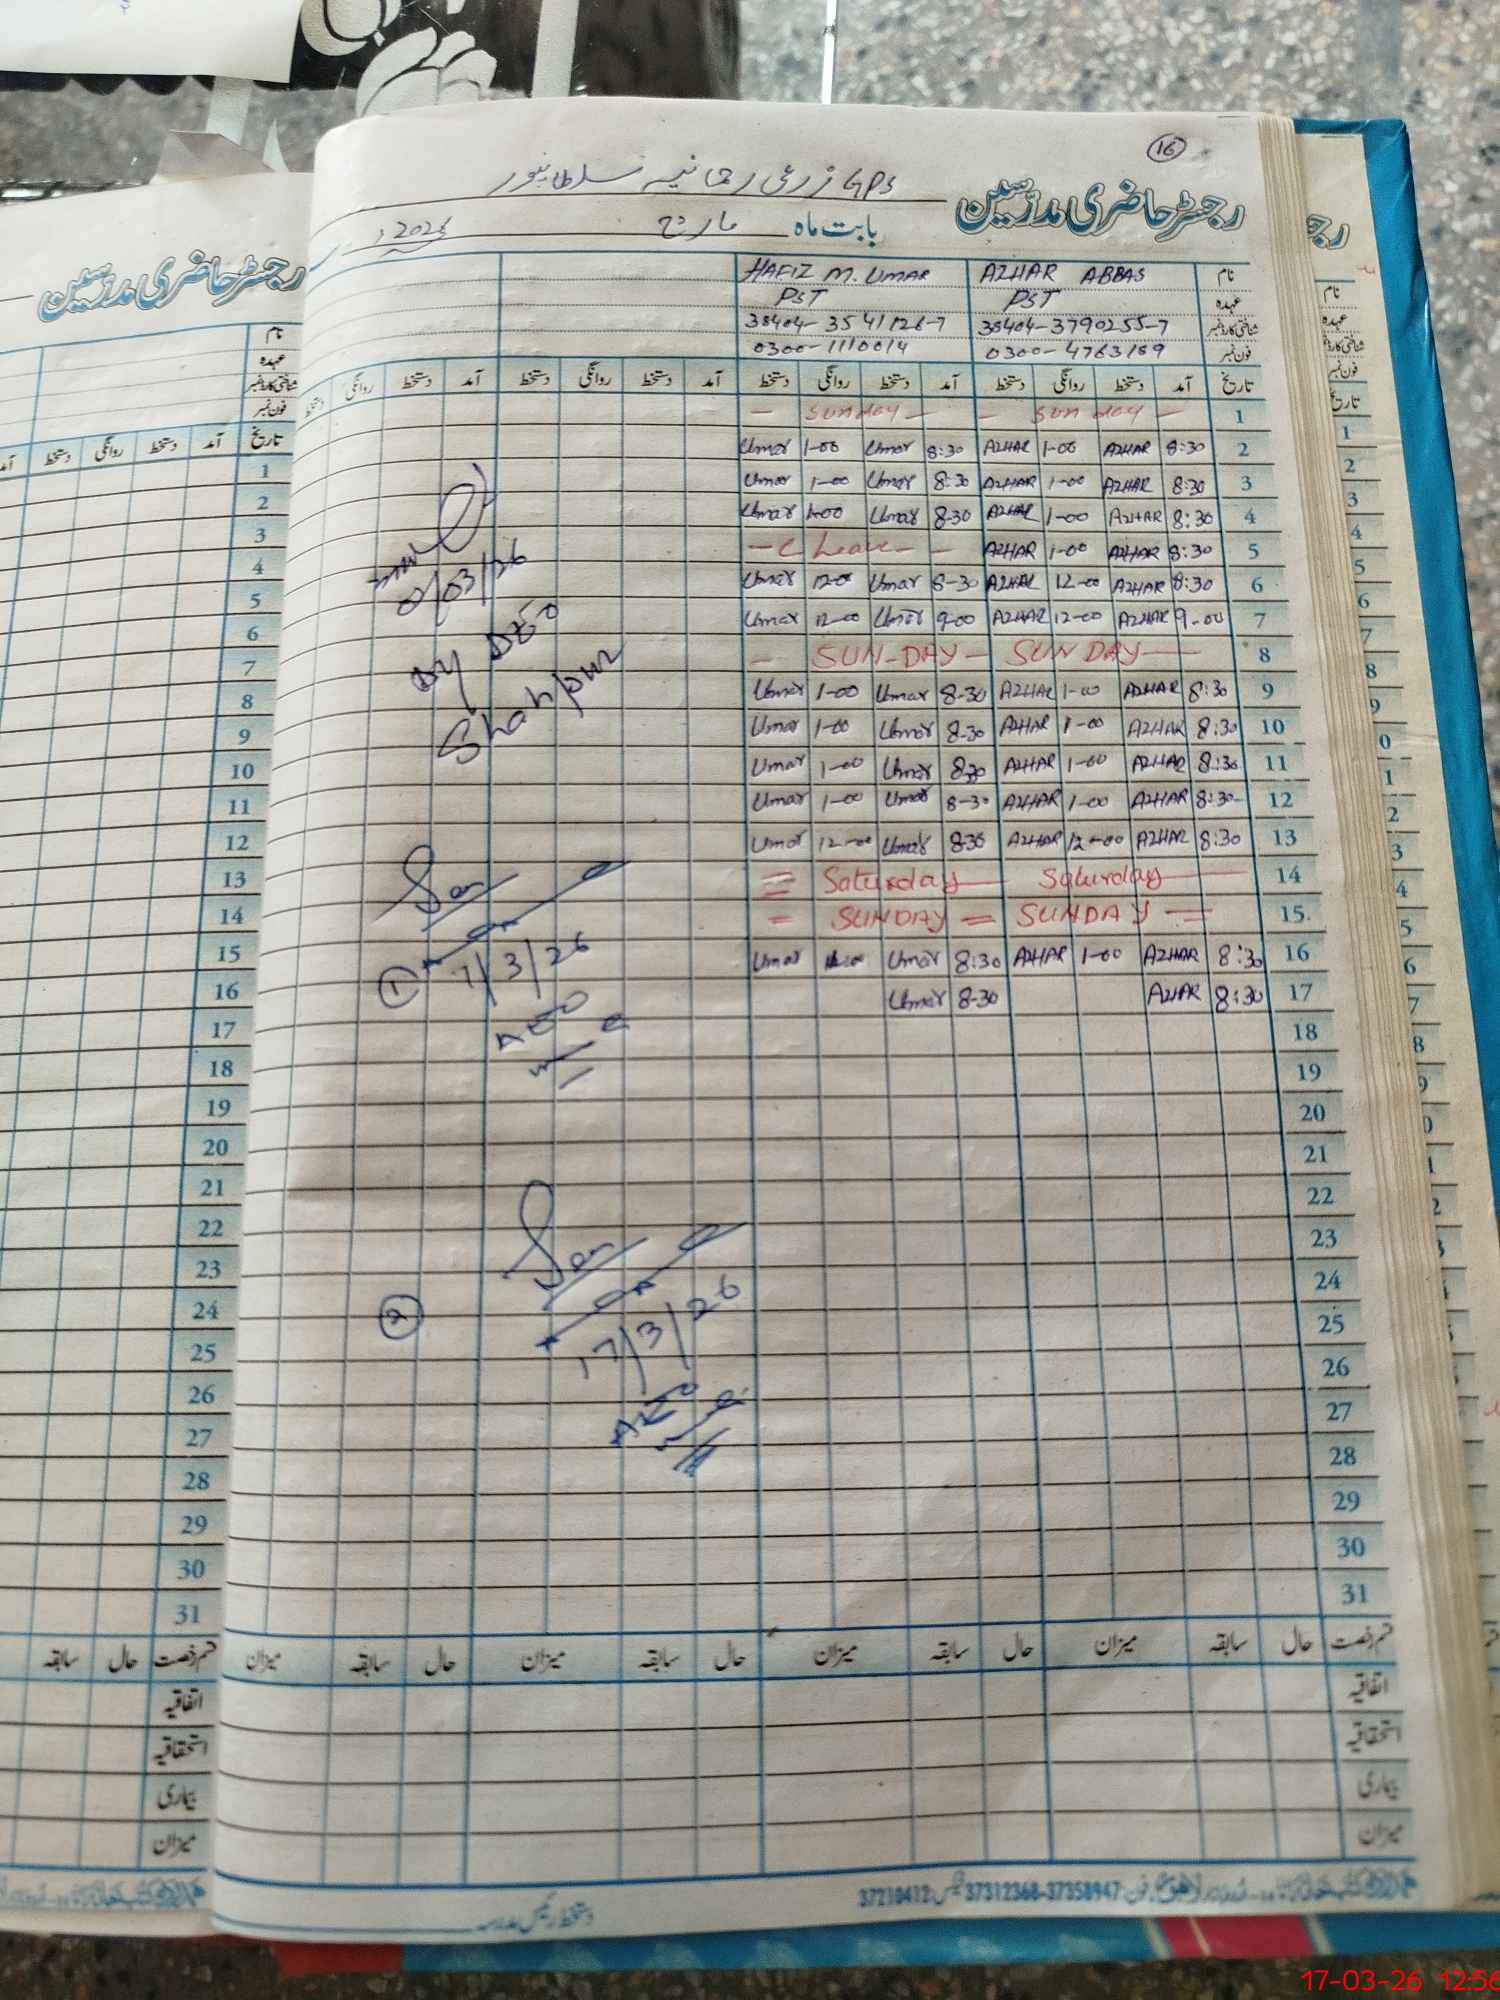 16
رجسٹر حاضری مدرسین GPS زرعی رحمانیہ سلطانپور
بابت ماہ مارچ 2026ء
نام AZHAR ABBAS HAFIZ M. UMAR
عہدہ PST PST
شناختی کارڈ نمبر 38404-3790255-7 38404-3541126-7
فون نمبر 0300-4763189 0300-1110014
تاریخ آمد دستخط روانگی دستخط آمد دستخط روانگی دستخط آمد دستخط روانگی دستخط آمد دستخط روانگی دستخط
1 - Sunday - - Sunday -
2 8:30 AZHAR 1-00 AZHAR 8:30 Umar 1-00 Umar
3 8:30 AZHAR 1-00 AZHAR 8-30 Umar 1-00 Umar
4 8:30 AZHAR 1-00 AZHAR 8-30 Umar 1-00 Umar
5 8:30 AZHAR 1-00 AZHAR - C Leave - -
6 8:30 AZHAR 12-00 AZHAR 8-30 Umar 12-00 Umar
7 9-00 AZHAR 12-00 AZHAR 9-00 Umar 12-00 Umar
8 - SUN-DAY - SUN DAY -
9 8:30 AZHAR 1-00 AZHAR 8-30 Umar 1-00 Umar
10 8:30 AZHAR 1-00 AZHAR 8-30 Umar 1-00 Umar
11 8:30 AZHAR 1-00 AZHAR 8-30 Umar 1-00 Umar
12 8:30 AZHAR 1-00 AZHAR 8-30 Umar 1-00 Umar
13 8:30 AZHAR 12-00 AZHAR 8-30 Umar 12-00 Umar
14 = Saturday - Saturday -
15 = SUNDAY = SUNDAY =
16 8:30 AZHAR 1-00 AZHAR 8:30 Umar Umar
17 8:30 AZHAR 8-30 Umar
18
19
20
21
22
23
24
25
26
27
28
29
30
31
/03/26
Dy DEO
Shahpur
1
7/3/26
AEO
2
17/3/26
AEO
قسم رخصت حال سابقہ میزان حال سابقہ میزان حال سابقہ میزان حال سابقہ میزان
اتفاقیہ
استحقاقیہ
بیماری
میزان
فون: 37358947-37312368 فیکس: 37210412
دستخط رئیس مدرسہ
رجسٹر حاضری مدرسین
نام
عہدہ
شناختی کارڈ نمبر
فون نمبر
تاریخ آمد دستخط روانگی دستخط آمد
1
2
3
4
5
6
7
8
9
10
11
12
13
14
15
16
17
18
19
20
21
22
23
24
25
26
27
28
29
30
31
قسم رخصت حال سابقہ
اتفاقیہ
استحقاقیہ
بیماری
میزان
17-03-26 12:56